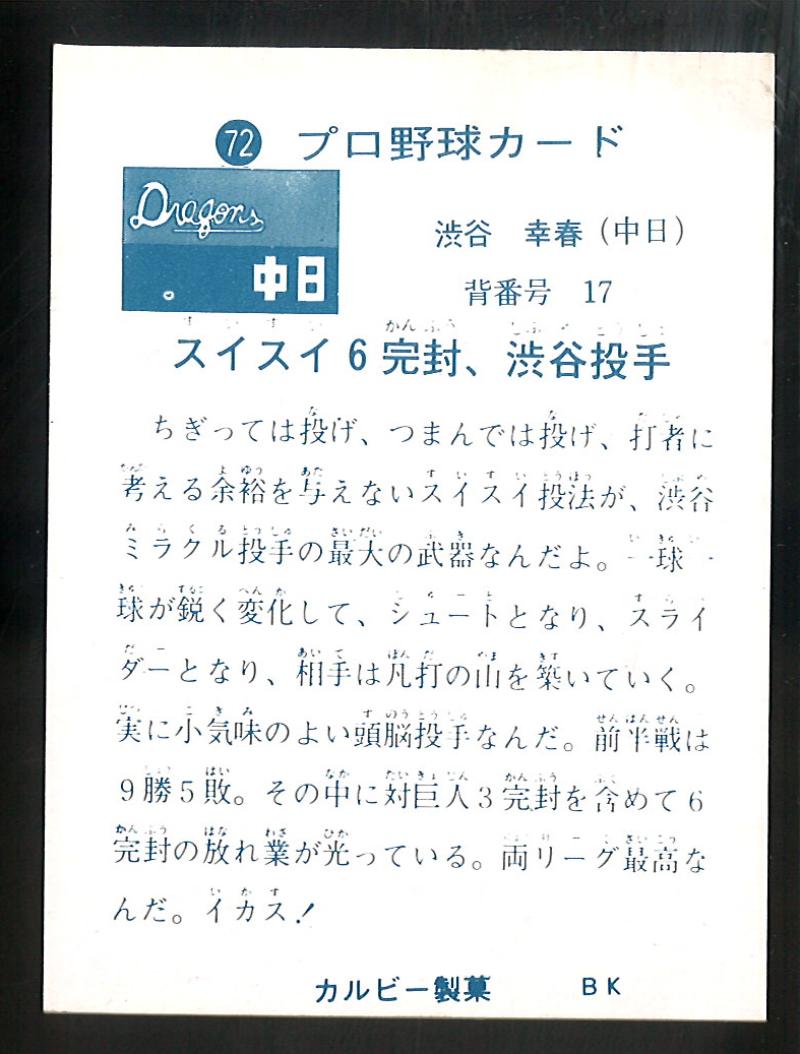 72 プロ野球カード
Dragons
中日
渋谷 幸春(中日)
背番号 17
スイスイ6完封、渋谷投手
ちぎっては投げ、つまんでは投げ、打者に
考える余裕を与えないスイスイ投法が、渋谷
ミラクル投手の最大の武器なんだよ。一球一
球が鋭く変化して、シュートとなり、スライ
ダーとなり、相手は凡打の山を築いていく。
実に小気味のよい頭脳投手なんだ。前半戦は
9勝5敗。その中に対巨人3完封を含めて6
完封の放れ業が光っている。両リーグ最高な
んだ。イカス!
カルビー製菓 BK